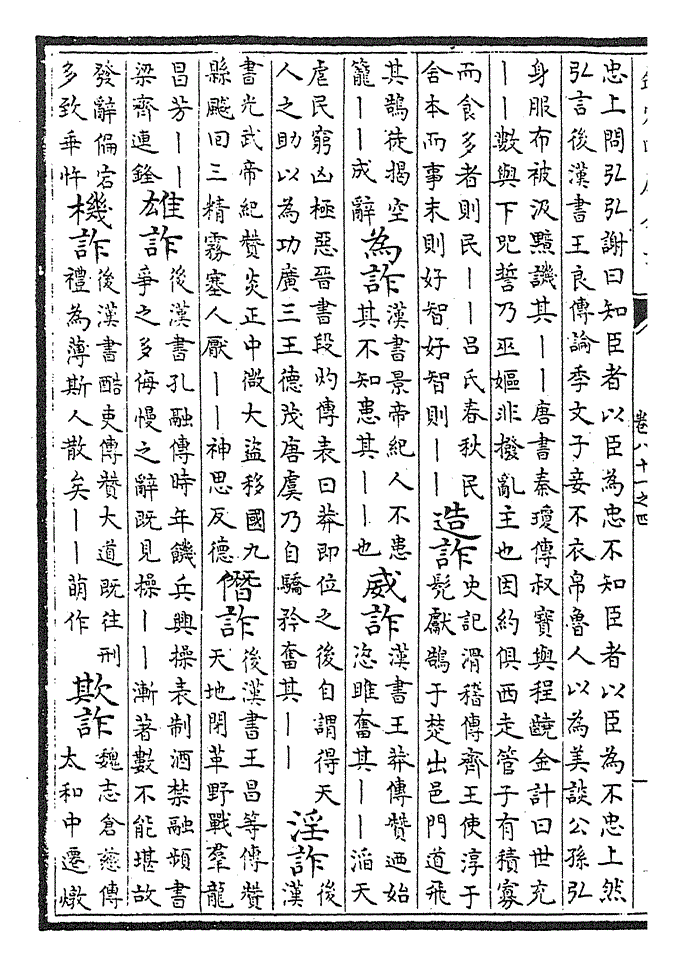 卷八十一之四
忠上問弘弘謝曰知臣者以臣為忠不知臣者以臣為不忠上然
弘言後漢書王良傳論季文子妾不衣帛魯人以為美談公孫弘
身服布被汲黯譏其——唐書秦瓊傳叔寶與程齩金計曰世充
——數與下咒誓乃巫嫗非撥亂主也因約俱西走管子有積寡
而食多者則民——呂氏春秋民
舍本而事末則好智好智則——
造詐
史記滑稽傳齊王使淳于
髡獻鵠于楚出邑門道飛
其鵠徒揭空
籠——成辭
為詐
漢書景帝紀人不患
其不知患其——也
威詐
漢書王莽傳贊迺始
恣睢奮其——滔天
虐民窮凶極惡晉書段灼傳表曰莽即位之後自謂得天
人之助以為功廣三王德茂唐虞乃自驕矜奮其——
淫詐
後
漢
書光武帝紀贊炎正中微大盜移國九
縣飈回三精霧塞人厭——神思反德
僭詐
後漢書王昌等傳贊
天地閉革野戰羣龍
昌芳——
梁齊連鋒
雄詐
後漢書孔融傳時年饑兵興操表制酒禁融頻書
爭之多侮慢之辭既見操——漸著數不能堪故
發辭偏宕
多致乖忤
機詐
後漢書酷吏傳贊大道既往刑
禮為薄斯人散矣——萌作
欺詐
魏志倉慈傳
太和中遷燉